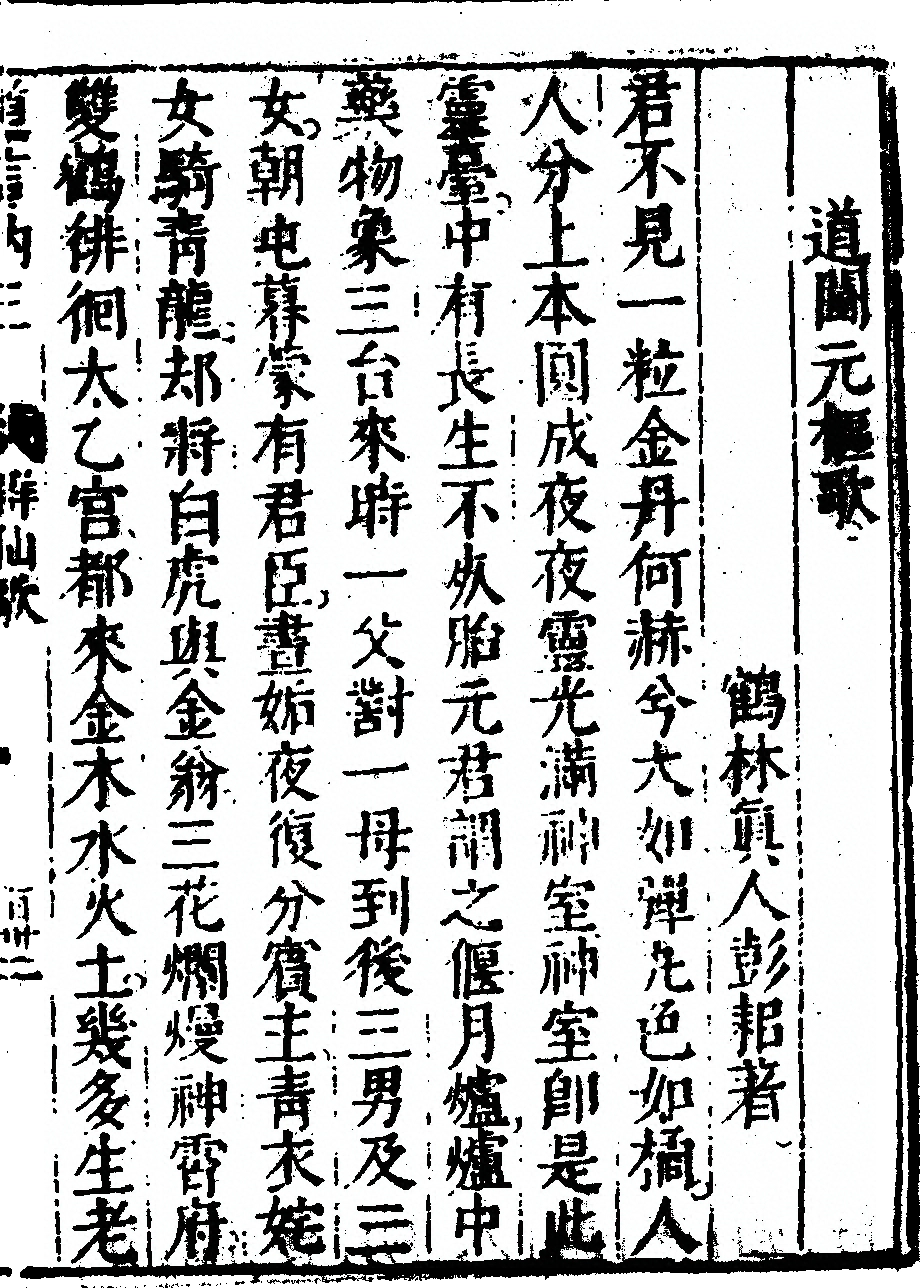 道閫元樞歌
鶴林眞人彭耜著
君不見一粒金丹何赫兮大如彈丸色如橘人
人分上本圓成夜夜靈光滿神室神室卽是此
靈臺中有長生不夾胎元君謂之偃月爐爐中
藥物象三台來時一父對一母到後三男及三
女朝屯暮蒙有君臣晝姤夜復分賓主青衣姹
女騎青龍却將白虎與金翁三花爛熳神霄府
雙鶴徘徊太乙宮都來金木水火土幾多生老